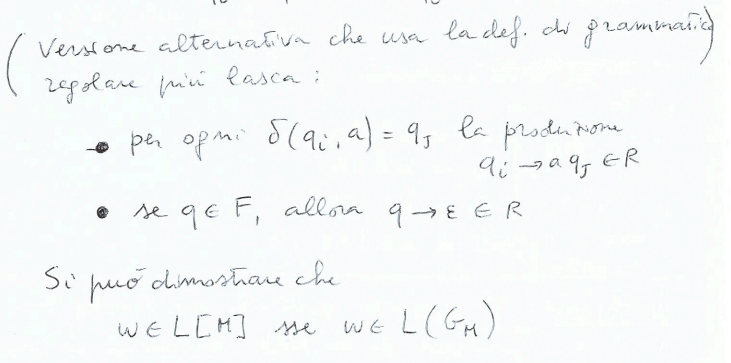 (Versione alternativa che usa la def. di grammatica)
regolare più lasca :
• per ogni δ(qi, a) = qj la produzione
qi → a qj ∈ R
• se q ∈ F, allora q → ε ∈ R
Si può dimostrare che
w ∈ L[M] sse w ∈ L(GM)